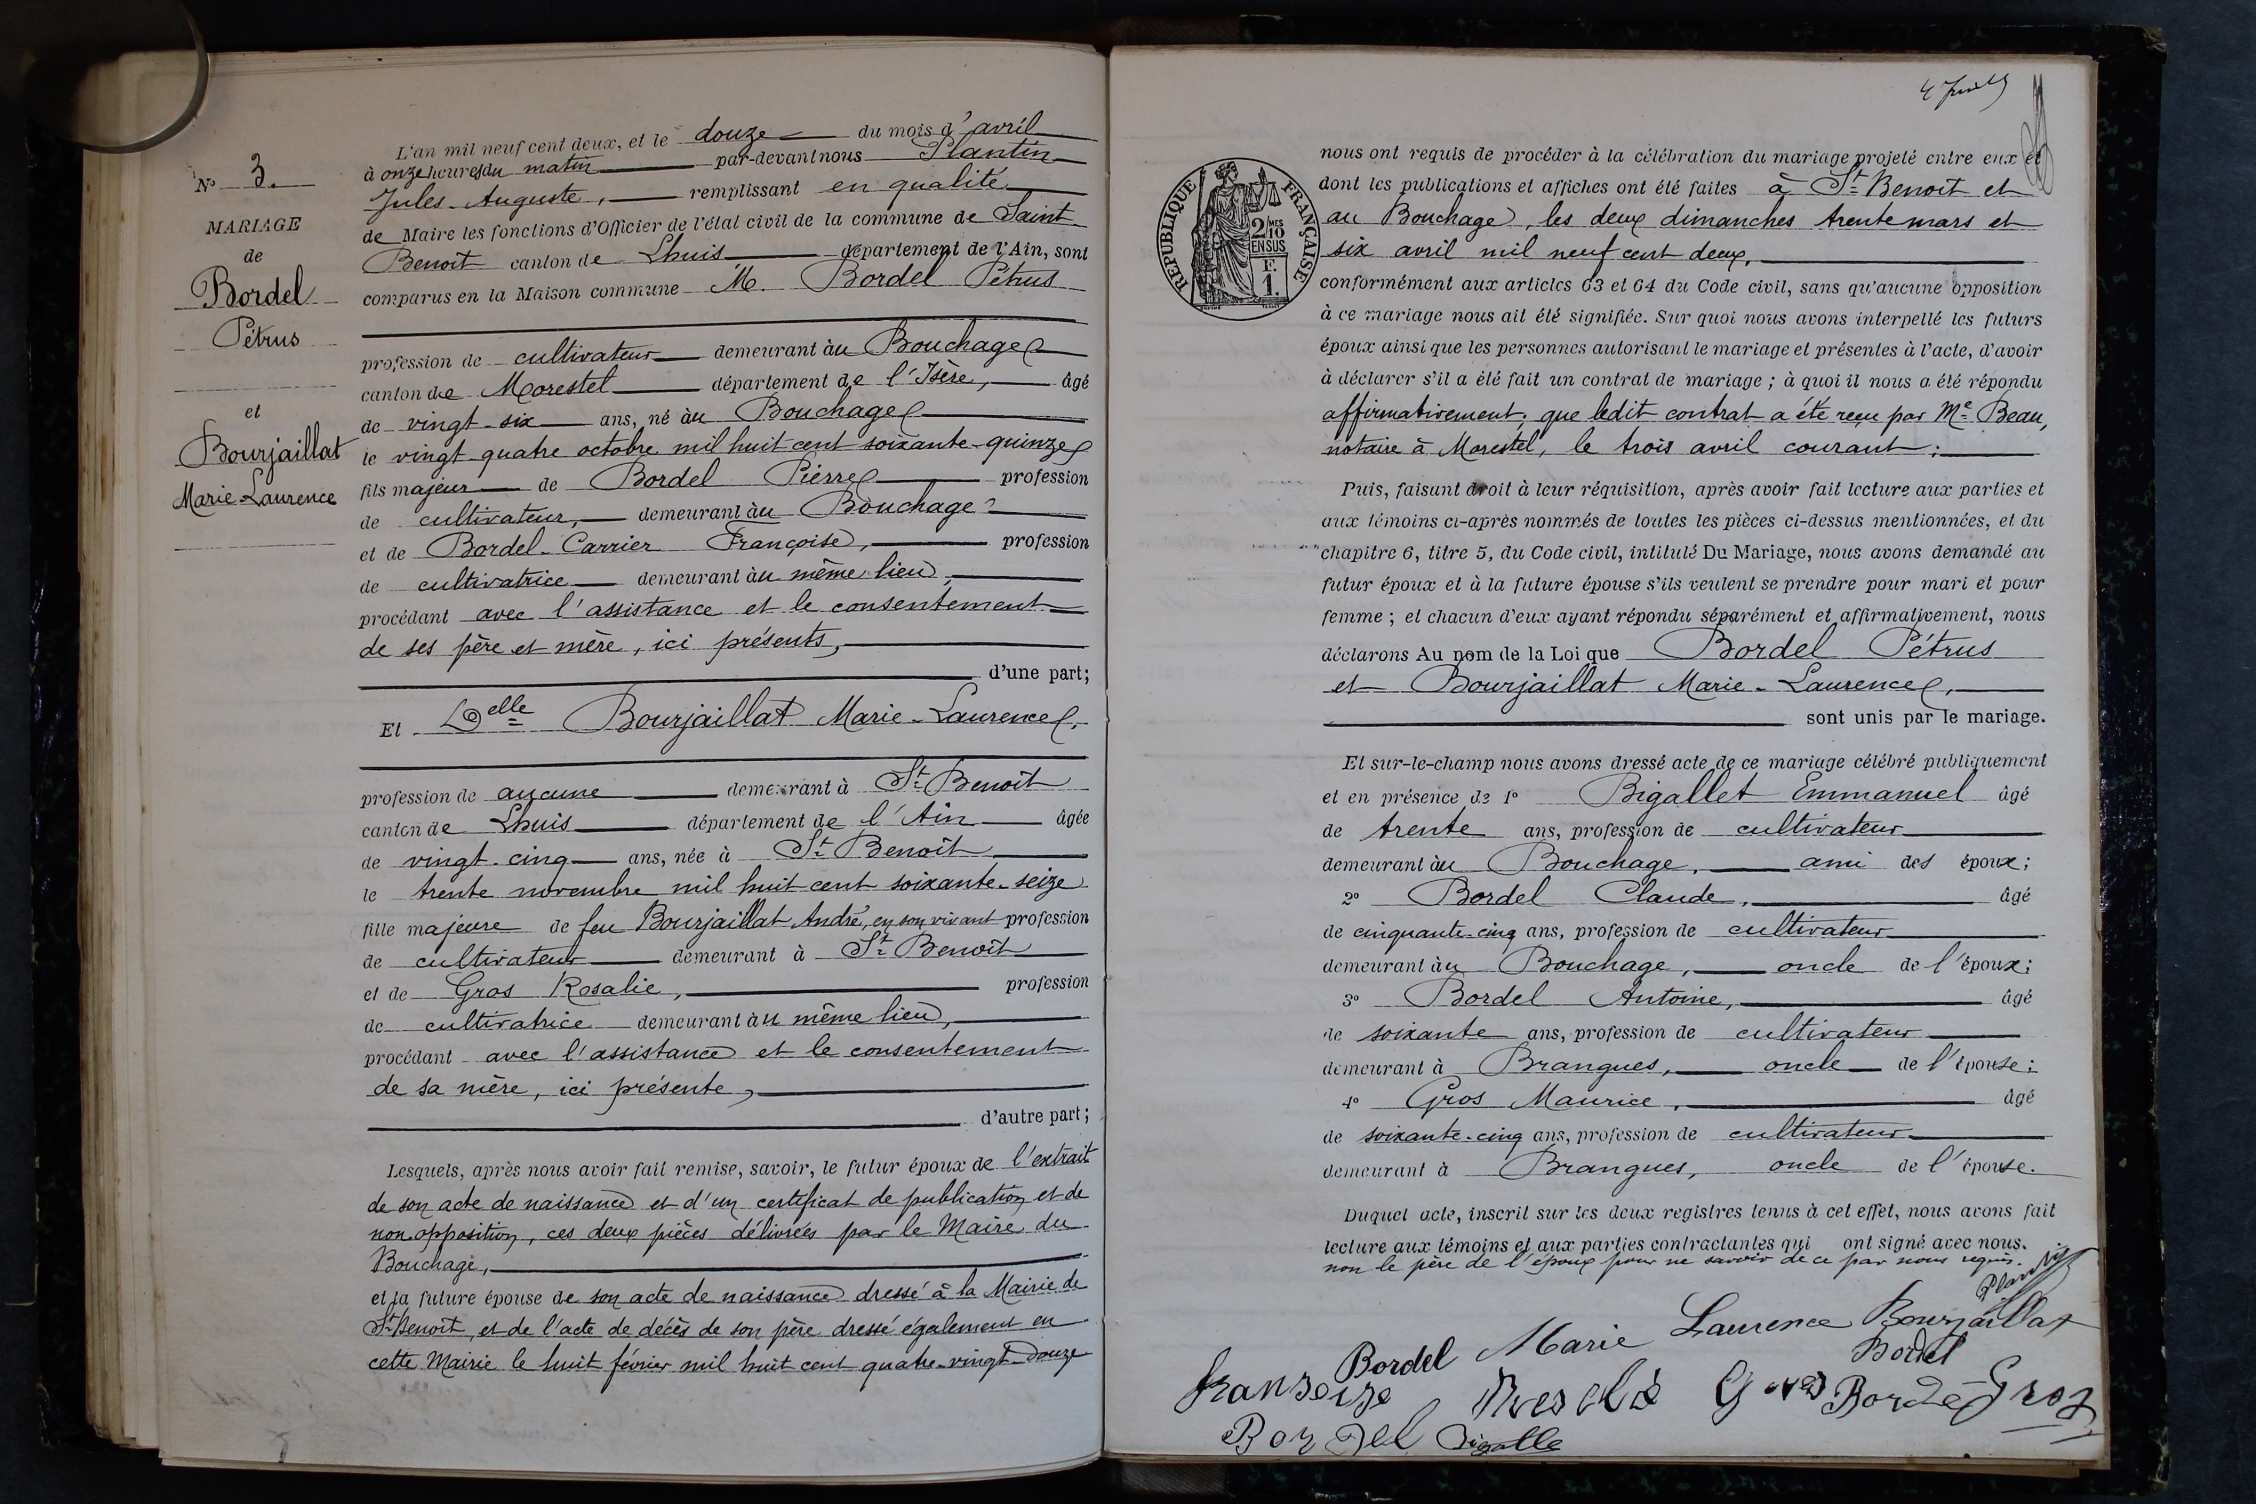 L'an mil neuf cent deux, et le douze du mois d'avril
à onze heures du matin par-devant nous Plantin
Jules-Auguste, remplissant en qualité
de Maire les fonctions d'Officier de l'état civil de la commune de Saint-
Benoit canton de Lhuis département de l'Ain, sont
comparus en la Maison commune M. Bordel Pétrus
profession de cultivateur demeurant au Bouchage
canton de Morestel département de l'Isère, âgé
de vingt-six ans, né au Bouchage
le vingt-quatre octobre mil huit cent soixante-quinze
fils majeur de Bordel Pierre profession
de cultivateur, demeurant au Bouchage
et de Bordel-Carrier Françoise, profession
de cultivatrice demeurant au même lieu,
procédant avec l'assistance et le consentement
de ses père et mère, ici présents,
d'une part;
Et Delle Bourjaillat Marie-Laurence,
profession de aucune demeurant à St Benoît
canton de Lhuis département de l'Ain âgée
de vingt-cinq ans, née à St Benoît
le trente novembre mil huit cent soixante-seize
fille majeure de feu Bourjaillat André, en son vivant profession
de cultivateur demeurant à St Benoît
et de Gros Rosalie, profession
de cultivatrice demeurant au même lieu,
procédant avec l'assistance et le consentement
de sa mère, ici présente,
d'autre part;
Lesquels, après nous avoir fait remise, savoir, le futur époux de l'extrait
de son acte de naissance et d'un certificat de publication et de
non opposition, ces deux pièces délivrées par le Maire du
Bouchage,
et la future épouse de son acte de naissance dressé à la Mairie de
St Benoit, et de l'acte de décès de son père dressé également en
cette Mairie le huit février mil huit cent quatre-vingt-douze
No 3.
MARIAGE
de
Bordel
Pétrus
et
Bourjaillat
Marie-Laurence
RÉPUBLIQUE FRANÇAISE
2 MES
10
EN SUS
F.
1.
nous ont requis de procéder à la célébration du mariage projeté entre eux et
dont les publications et affiches ont été faites à St Benoit et
au Bouchage, les deux dimanches trente mars et
six avril mil neuf cent deux,
conformément aux articles 63 et 64 du Code civil, sans qu'aucune opposition
à ce mariage nous ait été signifiée. Sur quoi nous avons interpellé les futurs
époux ainsi que les personnes autorisant le mariage et présentes à l'acte, d'avoir
à déclarer s'il a été fait un contrat de mariage ; à quoi il nous a été répondu
affirmativement, que ledit contrat a été reçu par Me Beau,
notaire à Morestel, le trois avril courant ;
Puis, faisant droit à leur réquisition, après avoir fait lecture aux parties et
aux témoins ci-après nommés de toutes les pièces ci-dessus mentionnées, et du
chapitre 6, titre 5, du Code civil, intitulé Du Mariage, nous avons demandé au
futur époux et à la future épouse s'ils veulent se prendre pour mari et pour
femme ; et chacun d'eux ayant répondu séparément et affirmativement, nous
déclarons Au nom de la Loi que Bordel Pétrus
et Bourjaillat Marie-Laurence,
sont unis par le mariage.
Et sur-le-champ nous avons dressé acte de ce mariage célébré publiquement
et en présence de 1° Bigallet Emmanuel âgé
de trente ans, profession de cultivateur
demeurant au Bouchage, ami des époux;
2° Bordel Claude, âgé
de cinquante-cinq ans, profession de cultivateur
demeurant au Bouchage, oncle de l'époux;
3° Bordel Antoine, âgé
de soixante ans, profession de cultivateur
demeurant à Brangues, oncle de l'épouse;
4° Gros Maurice, âgé
de soixante-cinq ans, profession de cultivateur
demeurant à Brangues, oncle de l'épouse.
Duquel acte, inscrit sur les deux registres tenus à cet effet, nous avons fait
lecture aux témoins et aux parties contractantes qui ont signé avec nous.
non le père de l'époux pour ne savoir de ce par nous requis.
Plantin
Bordel Marie Laurence Bourjaillat
Bordel
franSoise Gros Gros
BorDel